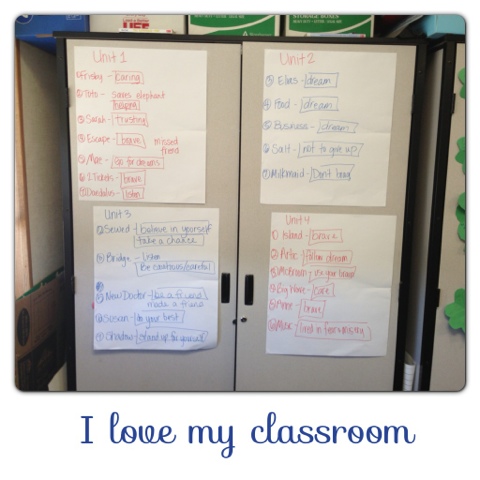 LIFE
STORAGE BOXES
Unit 1
① Frisky - caring
② Toto - saves elephant
helping
③ Sarah - trusting
④ Escape - brave missed
friend
⑤ Mae - go for dreams
⑥ 2 Tickets - brave
⑦ Daedalus - listen
Unit 2
③ Elvis - dream
④ Food - dream
⑤ Business - dream
⑥ Salt - not to give up!
⑦ Milkmaid - Don't brag
Unit 3
② Seaweed - believe in yourself
take a chance
③ Bridge - listen
Be cautious/careful
④ New Doctor - be a friend
made a friend
do your best
⑥ Shadow - stand up for yourself
Unit 4
① Island - brave
② Artic - follow dream
③ McBroom - use your brain
④ Big Wave - care
⑤ Anne - brave
⑥ Music -
I love my classroom